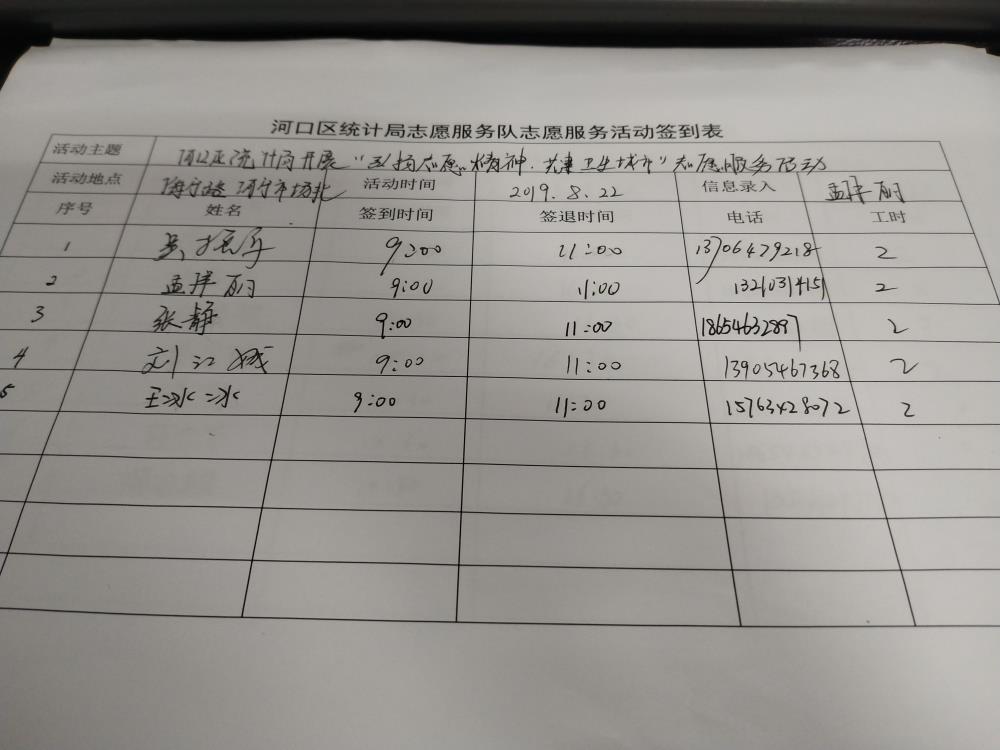 河口区统计局志愿服务队志愿服务活动签到表
活动主题 河口区统计局开展“弘扬志愿精神.共建卫生城市”志愿服务活动
活动地点 海宁路 河宁市场北 活动时间 2019.8.22 信息录入 孟祥丽
序号 姓名 签到时间 签退时间 电话 工时
1 9:00 11:00 13706479218 2
2 孟祥丽 9:00 11:00 1321031415 2
3 张静 9:00 11:00 18654632897 2
4 刘江城 9:00 11:00 13905467368 2
5 王冰冰 9:00 11:00 15763428072 2